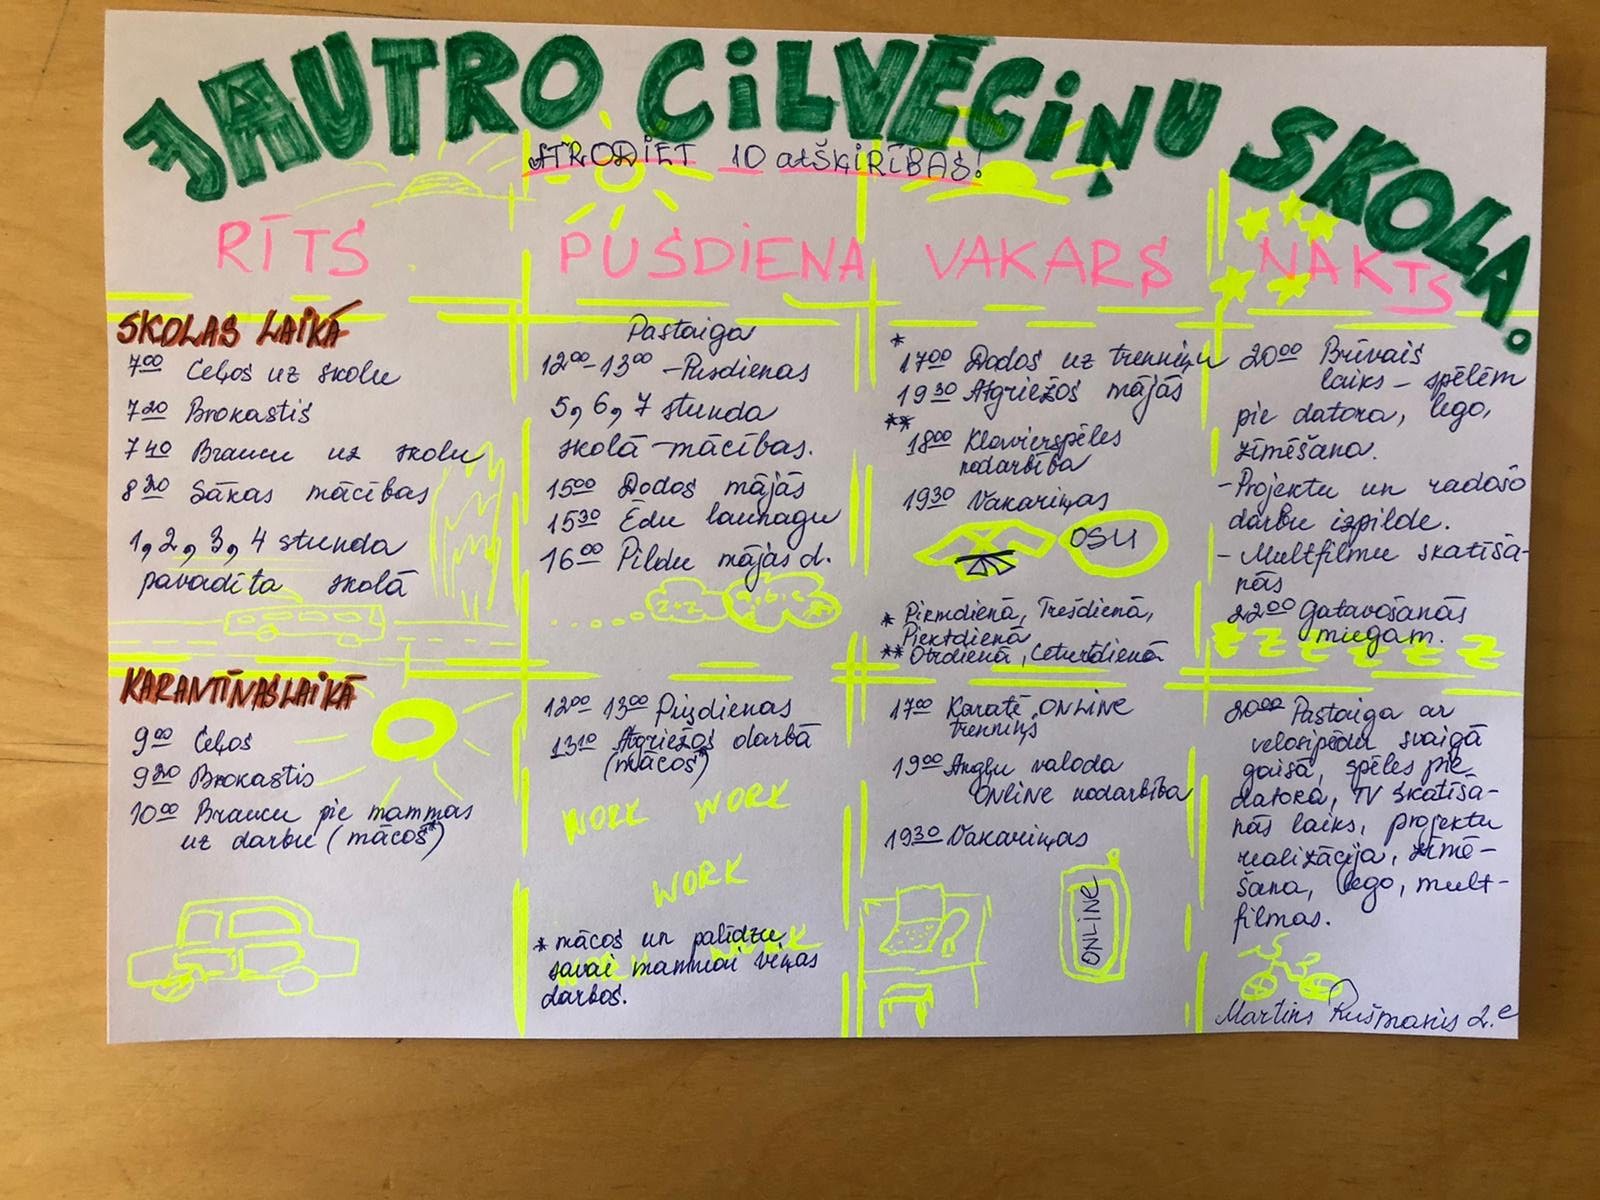 JAUTRO CILVĒCIŅU SKOLA.
ATRODIET 10 atŠĶIRĪBAS!
RĪTS
PUSDIENA
VAKARS
NAKTS
SKOLAS LAIKĀ
700 Ceļos uz skolu
720 Brokastis
740 Braucu uz skolu
820 Sākas mācības
1, 2, 3, 4 stunda
pavadīta skolā
Pastaiga
1200-1300 - Pusdienas
5, 6, 7 stunda
skolā - mācības.
1500 Dodos mājās
1530 Ēdu launagu
1600 Pildu mājas d.
2+2=
a, b, c
*
1700 Dodos uz treniņu
1930 Atgriežos mājās
**
1800 Klavierspēles
nodarbība
1930 Vakariņas
OSU
* Pirmdienā, Trešdienā,
Piektdienā
** Otrdienā, Ceturtdienā
2000 Brīvais
laiks - spēlēm
pie datora, lego,
zīmēšana.
- Projektu un radošo
darbu izpilde.
- Multfilmu skatīša-
nās
2200 Gatavošanās
miegam.
Z Z Z Z Z Z
KARANTĪNAS LAIKĀ
900 Ceļos
920 Brokastis
1000 Braucu pie mammas
uz darbu (mācos*)
1200 1300 Pusdienas
1310 Atgriežos darbā
(mācos*)
WORK WORK
WORK
WORK
* mācos un palīdzu
savai mammai viņas
darbos.
1700 Karatē ONLINE
treniņš
1900 Angļu valoda
ONLINE nodarbība
1930 Vakariņas
ONLINE
2000 Pastaiga ar
velosipēdu svaigā
gaisā, spēles pie
datora, TV skatīša-
nās laiks, projektu
realizācija, zīmē-
šana, lego, mult-
filmas.
Martins Kušmanis 2.e